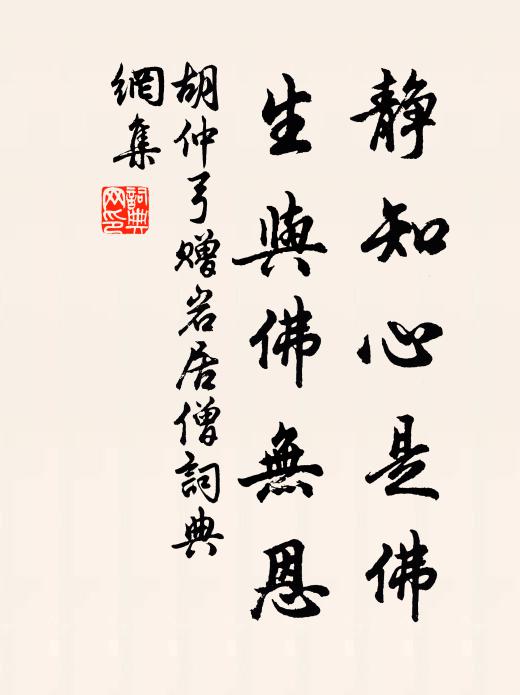 静知心是佛
生與佛無恩
胡仲弓贈岩居僧詞典
網集
詞典網印